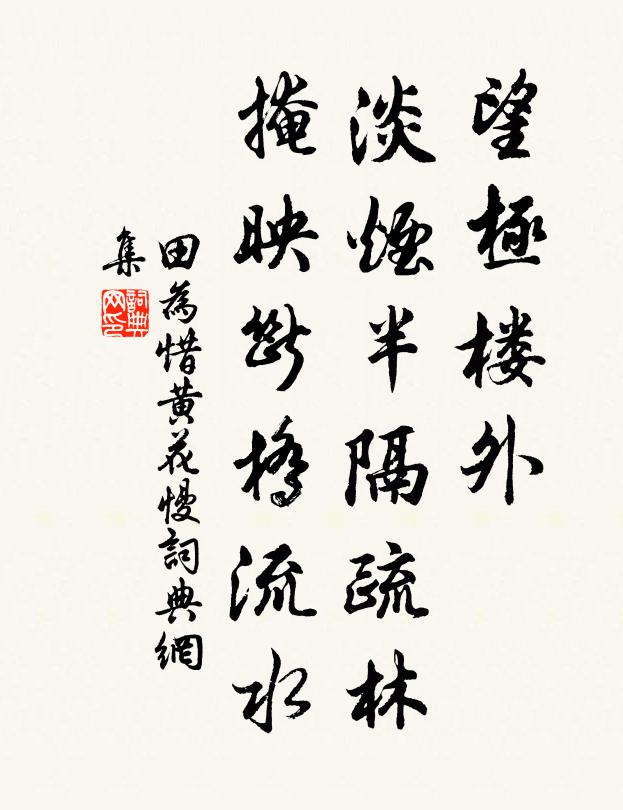 望極楼外
淡煙半隔疏林
掩映断橋流水
田為惜黄花慢詞典網
集
詞典網印